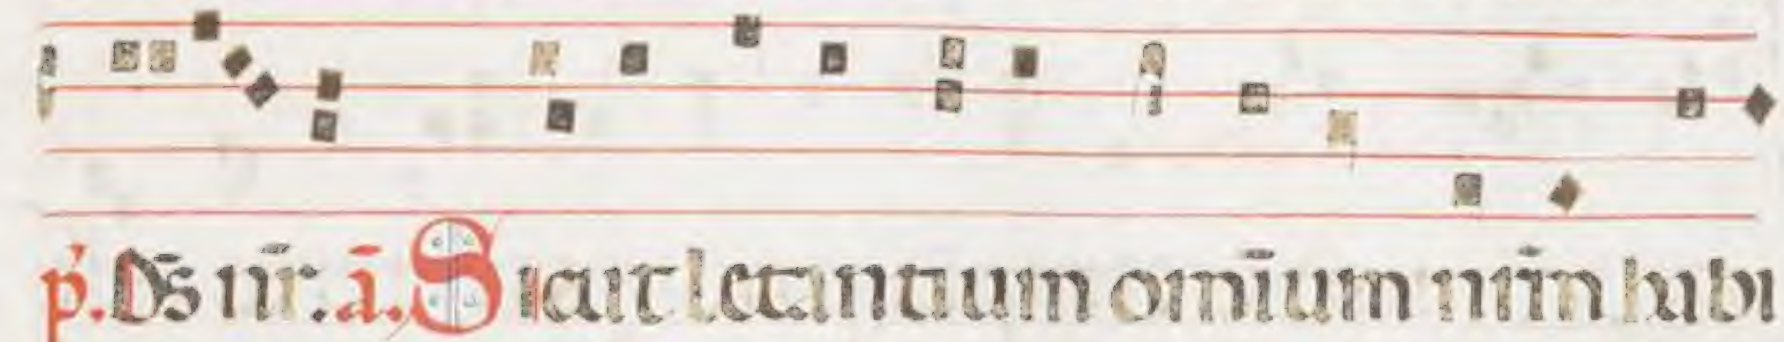 p̄. Ds̄ nr̄. ā. Sicut letantium omīum nr̄m habi